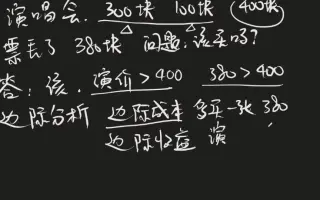 演唱会. 300块 100块 400块
票丢了 380块 问题,该买吗?
答:该,演价>400 380>400
边际分析 边际成本 多买一张 380
边际收益 演